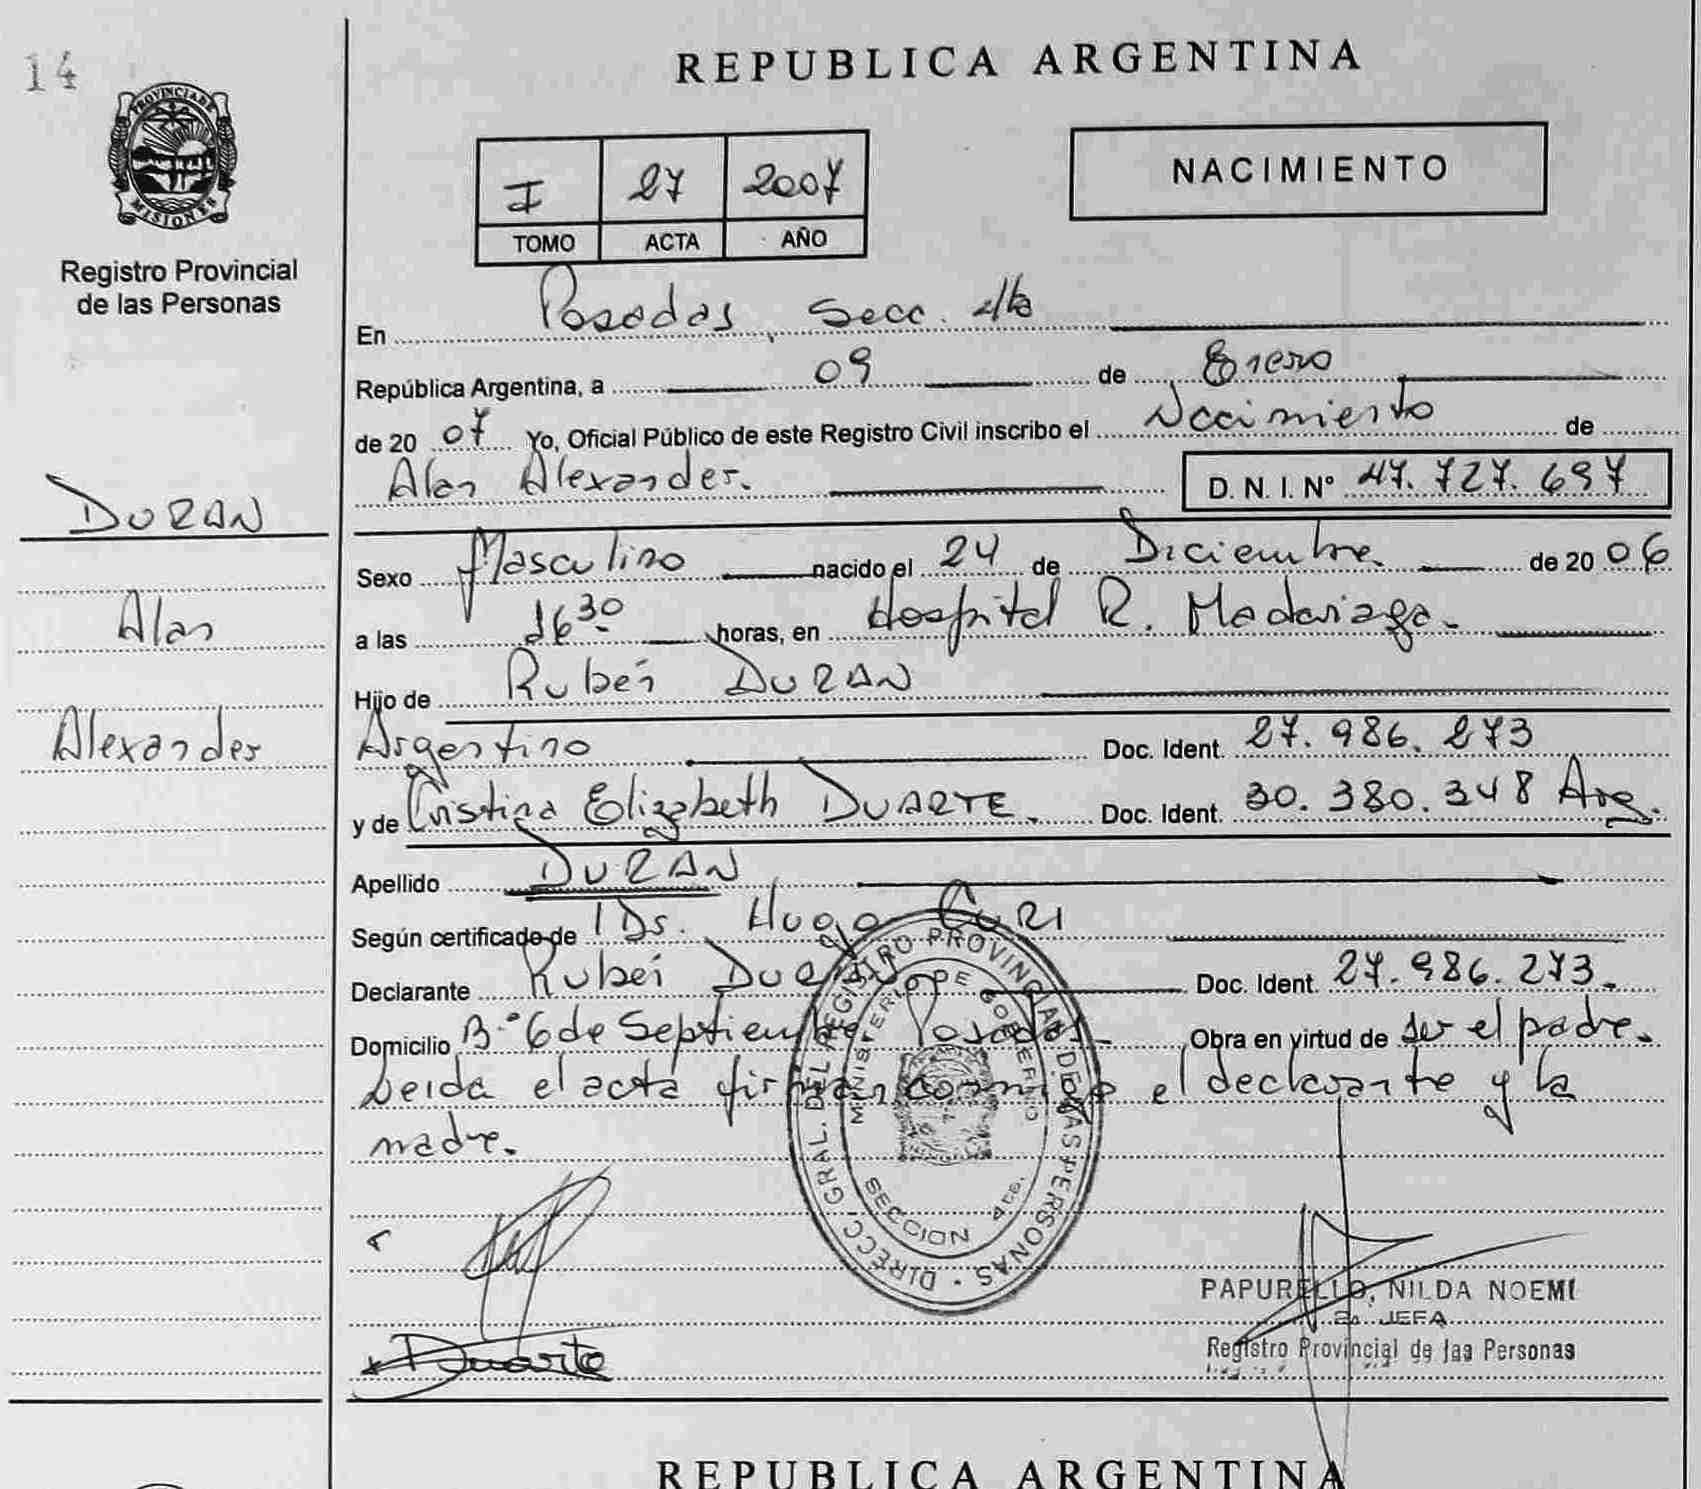 14
REPUBLICA ARGENTINA
PROVINCIA DE
MISIONES
Registro Provincial
de las Personas
I 27 2007
TOMO ACTA AÑO
NACIMIENTO
En Posadas, Secc. 4ta
República Argentina, a 09 de Enero
de 2007 Yo, Oficial Público de este Registro Civil inscribo el Nacimiento de
Alan Alexander. D. N. I. Nº 47.727.697
DURAN
Alan
Alexander
Sexo Masculino nacido el 24 de Diciembre de 2006
a las 16 30 horas, en Hospital R. Madariaga.
Hijo de Rubén DURAN
Argentino Doc. Ident. 27.986.273
y de Cristina Elizabeth DUARTE. Doc. Ident. 30.380.348 Arg.
Apellido DURAN
Según certificado de Ds. Hugo CURI
Declarante Rubén DURAN Doc. Ident. 27.986.273.
Domicilio B.º 6 de Septiembre Posadas. Obra en virtud de ser el padre.
Leida el acta firman conmigo el declarante y la
madre.
DIRECC. GRAL. DEL REGISTRO PROVINCIAL DE LAS PERSONAS
MINISTERIO DE GOBIERNO
SECCION 4ta.
Duarte
PAPURELLO, NILDA NOEMI
2a. JEFA
Registro Provincial de las Personas
REPUBLICA ARGENTINA